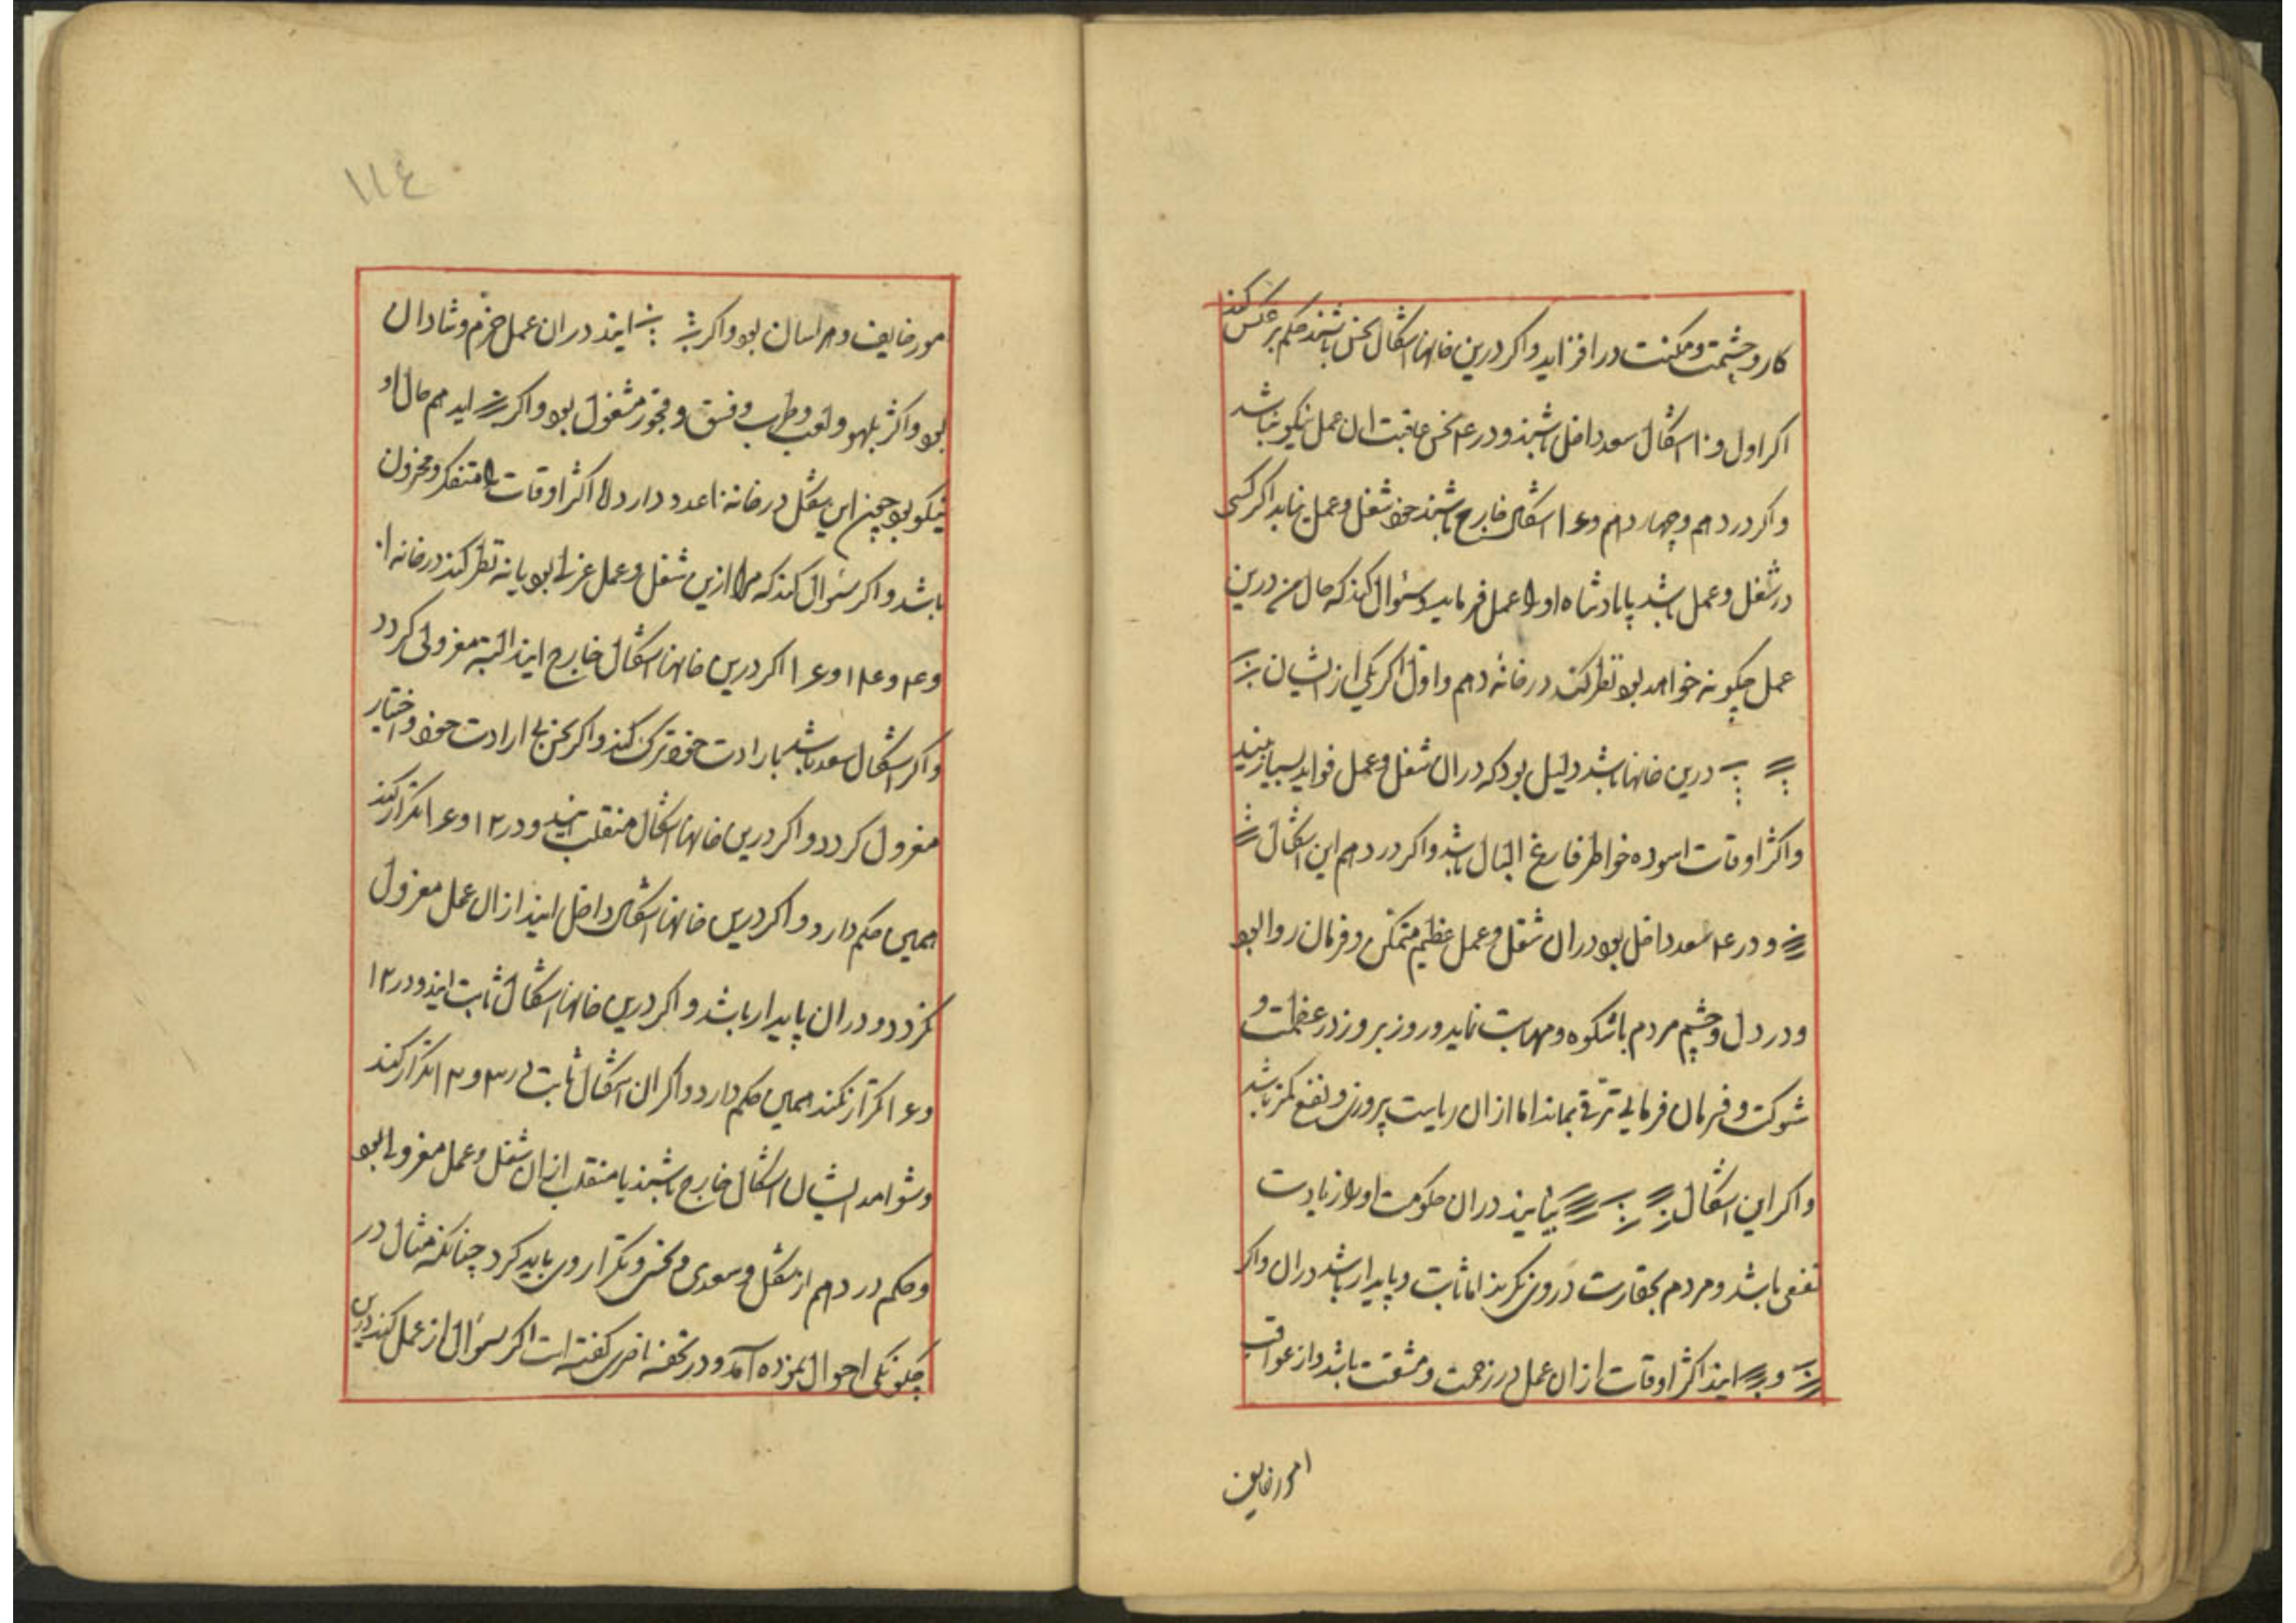 کار و حشمت و مکنت در افزاید و اکر درین خانها اشکال نحس باشند حکم بر عکس کند
اکر اول و ۱۰ اشکال سعد داخل باشند و در ۴ نحس عاقبت ان عمل نیکو نباشد
و اکر در دهم و چهاردهم و ۱۶ اشکال خارج باشند خود شغل و عمل نیابد اکر کسی
در شغل و عمل باشد یا پادشاه او را عمل فرماید و سئوال کند که حال من درین
عمل چکونه خواهد بود نظر کند در خانه دهم و اول اکر یکی از ایشان
درین خانها باشد دلیل بود که در ان شغل و عمل فواید بسیار بیند
و اکثر اوقات اسوده خواطر فارغ البال باشد و اکر در دهم این اشکال
و در ۴ سعد داخل بود در ان شغل و عمل عظیم متمکن و فرمان روا بود
و در دل و چشم مردم باشکوه و مهابت نماید و روز بروز در عظمت و
شوکت و فرمان فرمایی ترقی بماند اما از ان ریاست پروزی و نفع کمتر باشد
و اکر این اشکال بیایند در ان حکومت او را زیادت
نفعی باشد و مردم بحقارت در وی نکرند اما ثابت و پایدار باشد در ان و اکر
و ایند اکثر اوقات از ان عمل در زحمت و مشقت باشد و از عواقب
امور خایف
۱۱٤
مور خایف و هراسان بود و اکر ایند در ان عمل خرّم و شادان
بود و اکثر بلهو و لعب و طرب و فسق و فجور مشغول بود و اکر اید هم حال او
نیکو بود چون این شکل در خانه ۱۰ عدد دارد لا اکثر اوقات متفکر و محزون
باشد و اکر سئوال کند که مرا ازین شغل و عمل عزلی بود یا نه نظر کند در خانه ۱۰
و ۴ و ۱۴ و ۱۶ اکر درین خانها اشکال خارج ایند البته معزولی کردد
و اکر اشکال سعد باشد بارادت خود ترک کند و اکر نحس بی ارادت خود و اختیار
معزول کردد و اکر درین خانها اشکال منقلب ایند و در ۱۲ و ۶ تکرار کند
همین حکم دارد و اکر درین خانها اشکال داخل ایند از ان عمل معزول
نکردد و در ان پایدار باشد و اکر درین خانها اشکال ثابت ایند و در ۱۲
و ۶ تکرار نکند همین حکم دارد و اکر ان اشکال ثابت در ۳ و ۱۲ تکرار کند
و شواهد ایشان اشکال خارج باشند یا منقلب از ان شغل و عمل معزول بود
و حکم در دهم از شکل و سعدی و نحسی و تکرار وی باید کرد چنانکه مثال در
چکونکی احوال نموده آمد و در تحفه ناصری کفته است اکر سئوال از عمل کنند درین